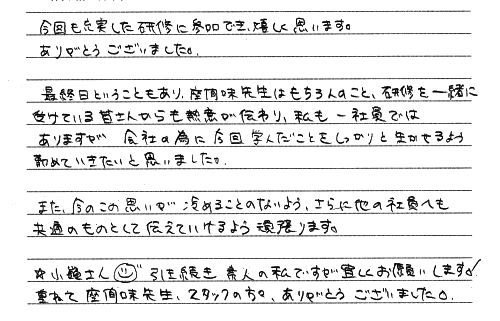 今回も充実した研修に参加でき、嬉しく思います。
ありがとうございました。
最終日ということもあり、座間味先生はもちろんのこと、研修を一緒に
受けている皆さんからも熱意が伝わり、私も一社員では
ありますが 会社の為に今回学んだことをしっかりと生かせるよう
勤めていきたいと思いました。
また、今のこの思いが冷めることのないよう、さらに他の社員へも
共通のものとして伝えていけるよう頑張ります。
☆小亀さん 引き続き 素人の私ですが宜しくお願いします。
重ねて 座間味先生、スタッフの方々、ありがとうございました。